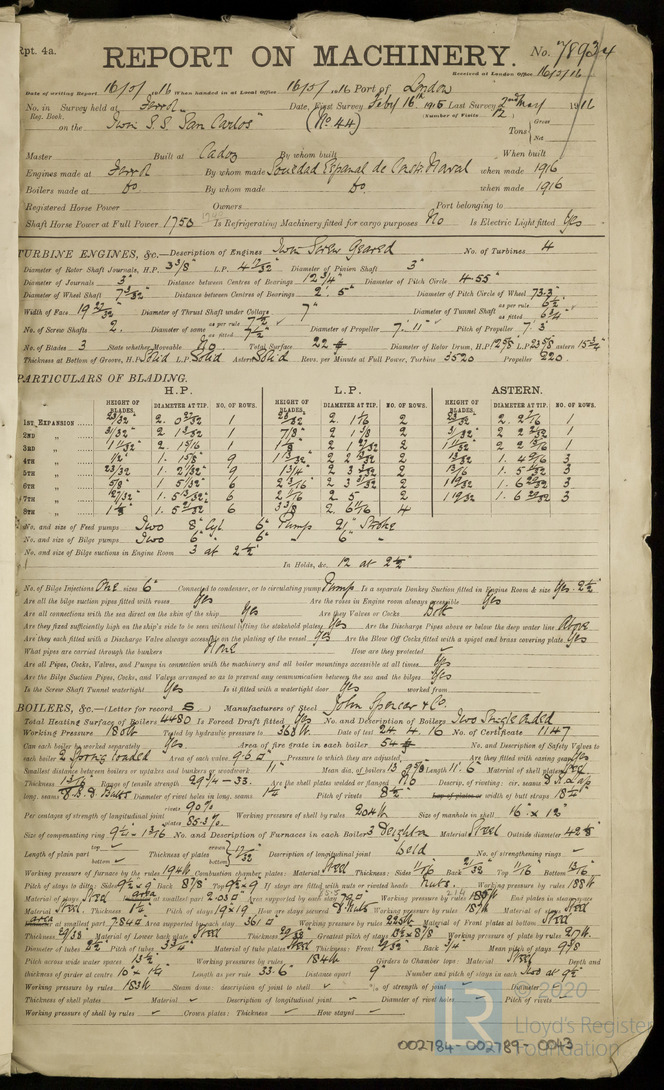 Rpt. 4a.
REPORT ON MACHINERY. No. 78934
Received at London Office 16/5/16
Date of writing Report 16/5/1916 When handed in at Local Office 16/5/1916 Port of London
No. in Survey held at Ferrol Date, First Survey Feby 16th 1915 Last Survey 2nd May 1916
Reg. Book. (Number of Visits 12)
on the Twin S.S. "San Carlos" (No 44)
Tons Gross
Net
Master Built at Cadiz By whom built When built
Engines made at Ferrol By whom made Sociedad Espanal de Const. Naval when made 1916
Boilers made at do. By whom made do. when made 1916
Registered Horse Power Owners Port belonging to
Shaft Horse Power at Full Power 1750 Is Refrigerating Machinery fitted for cargo purposes No Is Electric Light fitted Yes
TURBINE ENGINES, &c.—Description of Engines Twin Screw Geared No. of Turbines 4
Diameter of Rotor Shaft Journals, H.P. 3 3/8" L.P. Diameter of Pinion Shaft 3"
Diameter of Journals 3" Distance between Centres of Bearings 12 3/4" Diameter of Pitch Circle 4.55"
Diameter of Wheel Shaft Distance between Centres of Bearings 2' 5" Diameter of Pitch Circle of Wheel 73.3"
Width of Face Diameter of Thrust Shaft under Collars 7" Diameter of Tunnel Shaft as per rule 6 1/2" as fitted 6 3/4"
No. of Screw Shafts 2 Diameter of same as per rule as fitted Diameter of Propeller 7' 11" Pitch of Propeller 7' 3"
No. of Blades 3 State whether Moveable No Total Surface 22 Diameter of Rotor Drum, H.P. L.P. Astern 15 3/4"
Thickness at Bottom of Groove, H.P. Solid L.P. Solid Astern Solid Revs. per Minute at Full Power, Turbine 3520 Propeller 220
PARTICULARS OF BLADING.
H.P. L.P. ASTERN.
HEIGHT OF BLADES. DIAMETER AT TIP. NO. OF ROWS. HEIGHT OF BLADES. DIAMETER AT TIP. NO. OF ROWS. HEIGHT OF BLADES. DIAMETER AT TIP. NO. OF ROWS.
1ST EXPANSION 1 2 1
2ND " 1 7/8" 2 1
3RD " 1 2 1
4TH " 1/2" 9 2 3
5TH " 9 1 3/4" 2 3
6TH " 5/8" 6 2 3
7TH " 6 2 5 2 3
8TH " 6 3 3/8 4
No. and size of Feed pumps Two 8" Cyl 6" Pump 21" Stroke
No. and size of Bilge pumps Two 6" " 6" "
No. and size of Bilge suctions in Engine Room 3 at 2 1/2"
In Holds, &c. 12 at 2 1/2"
No. of Bilge Injections One sizes 6" Connected to condenser, or to circulating pump Pump Is a separate Donkey Suction fitted in Engine Room & size Yes 2 1/2"
Are all the bilge suction pipes fitted with roses Yes Are the roses in Engine room always accessible Yes
Are all connections with the sea direct on the skin of the ship Yes Are they Valves or Cocks Both
Are they fixed sufficiently high on the ship's side to be seen without lifting the stokehold plates Yes Are the Discharge Pipes above or below the deep water line Above
Are they each fitted with a Discharge Valve always accessible on the plating of the vessel Yes Are the Blow Off Cocks fitted with a spigot and brass covering plate Yes
What pipes are carried through the bunkers None How are they protected ✓
Are all Pipes, Cocks, Valves, and Pumps in connection with the machinery and all boiler mountings accessible at all times Yes
Are the Bilge Suction Pipes, Cocks, and Valves arranged so as to prevent any communication between the sea and the bilges Yes
Is the Screw Shaft Tunnel watertight Yes Is it fitted with a watertight door Yes worked from
BOILERS, &c.—(Letter for record S) Manufacturers of Steel John Spencer & Co.
Total Heating Surface of Boilers 4480 Is Forced Draft fitted Yes No. and Description of Boilers Two Single ended
Working Pressure 180 lb Tested by hydraulic pressure to 363 lb Date of test 24.4.16 No. of Certificate 1147
Can each boiler be worked separately Yes Area of fire grate in each boiler 54 No. and Description of Safety Valves to
each boiler 2 Spring loaded Area of each valve 9.6 Pressure to which they are adjusted Are they fitted with easing gear Yes
Smallest distance between boilers or uptakes and bunkers or woodwork 11" Mean dia. of boilers Length 11' 6" Material of shell plates Steel
Thickness Range of tensile strength 29 1/4 - 33 Are the shell plates welded or flanged No Descrip. of riveting: cir. seams
long. seams Diameter of rivet holes in long. seams Pitch of rivets 8 1/2" width of butt straps 18 1/2"
Per centages of strength of longitudinal joint rivets 90% plates 85.3% Working pressure of shell by rules 204 lb Size of manhole in shell 16" x 12"
Size of compensating ring No. and Description of Furnaces in each boiler 3 Deighton Material Steel Outside diameter
Length of plain part top ✓ bottom ✓ Thickness of plates crown bottom 17/32" Description of longitudinal joint Weld No. of strengthening rings ✓
Working pressure of furnace by the rules 194 lb Combustion chamber plates: Material Steel Thickness: Sides 11/16" Back 21/32" Top 11/16" Bottom
Pitch of stays to ditto: Sides Back Top If stays are fitted with nuts or riveted heads Nuts Working pressure by rules 188 lb
Material of stays Steel area at smallest part 2.03 Area supported by each stay Working pressure by rules End plates in steam space:
Material Steel Thickness Pitch of stays 19 x 19 How are stays secured Working pressure by rules 187 lb Material of stays Steel
area at smallest part 7.84 Area supported by each stay 361 Working pressure by rules Material of Front plates at bottom Steel
Thickness Material of Lower back plate Steel Thickness Greatest pitch of stays Working pressure of plate by rules
Diameter of tubes 2 1/2" Pitch of tubes Material of tube plates Steel Thickness: Front Back 3/4" Mean pitch of stays
Pitch across wide water spaces 13 1/2" Working pressures by rules 184 lb Girders to Chamber tops: Material Steel Depth and
thickness of girder at centre Length as per rule 33.6" Distance apart 9" Number and pitch of stays in each Two at 9 1/2"
Working pressure by rules 183 lb Steam dome: description of joint to shell ✓ % of strength of joint ✓ Diameter ✓
Thickness of shell plates ✓ Material ✓ Description of longitudinal joint ✓ Diameter of rivet holes ✓ Pitch of rivets ✓
Working pressure of shell by rules ✓ Crown plates: Thickness ✓ How stayed ✓
© 2020
LR Lloyd's Register
Foundation
002784-002789-0043